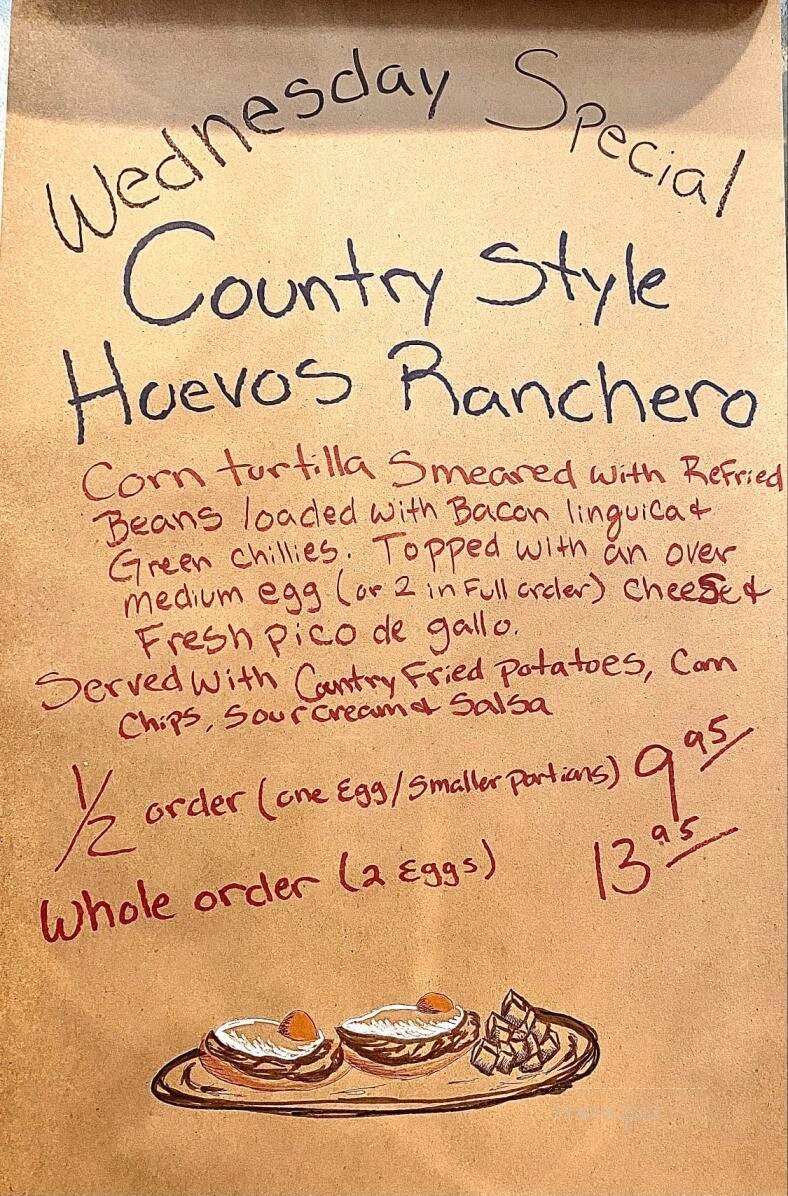 Wednesday Special
Country Style
Huevos Ranchero
Corn turtilla Smeared with Refried
Beans loaded with Bacon linguica &
Green chillies. Topped with an over
medium egg (or 2 in Full order) cheese &
Fresh pico de gallo.
Served with Country Fried potatoes, Corn
Chips, Sour cream & Salsa
1/2 order (one Egg/Smaller portions) 9 95
Whole order (2 Eggs) 13 95